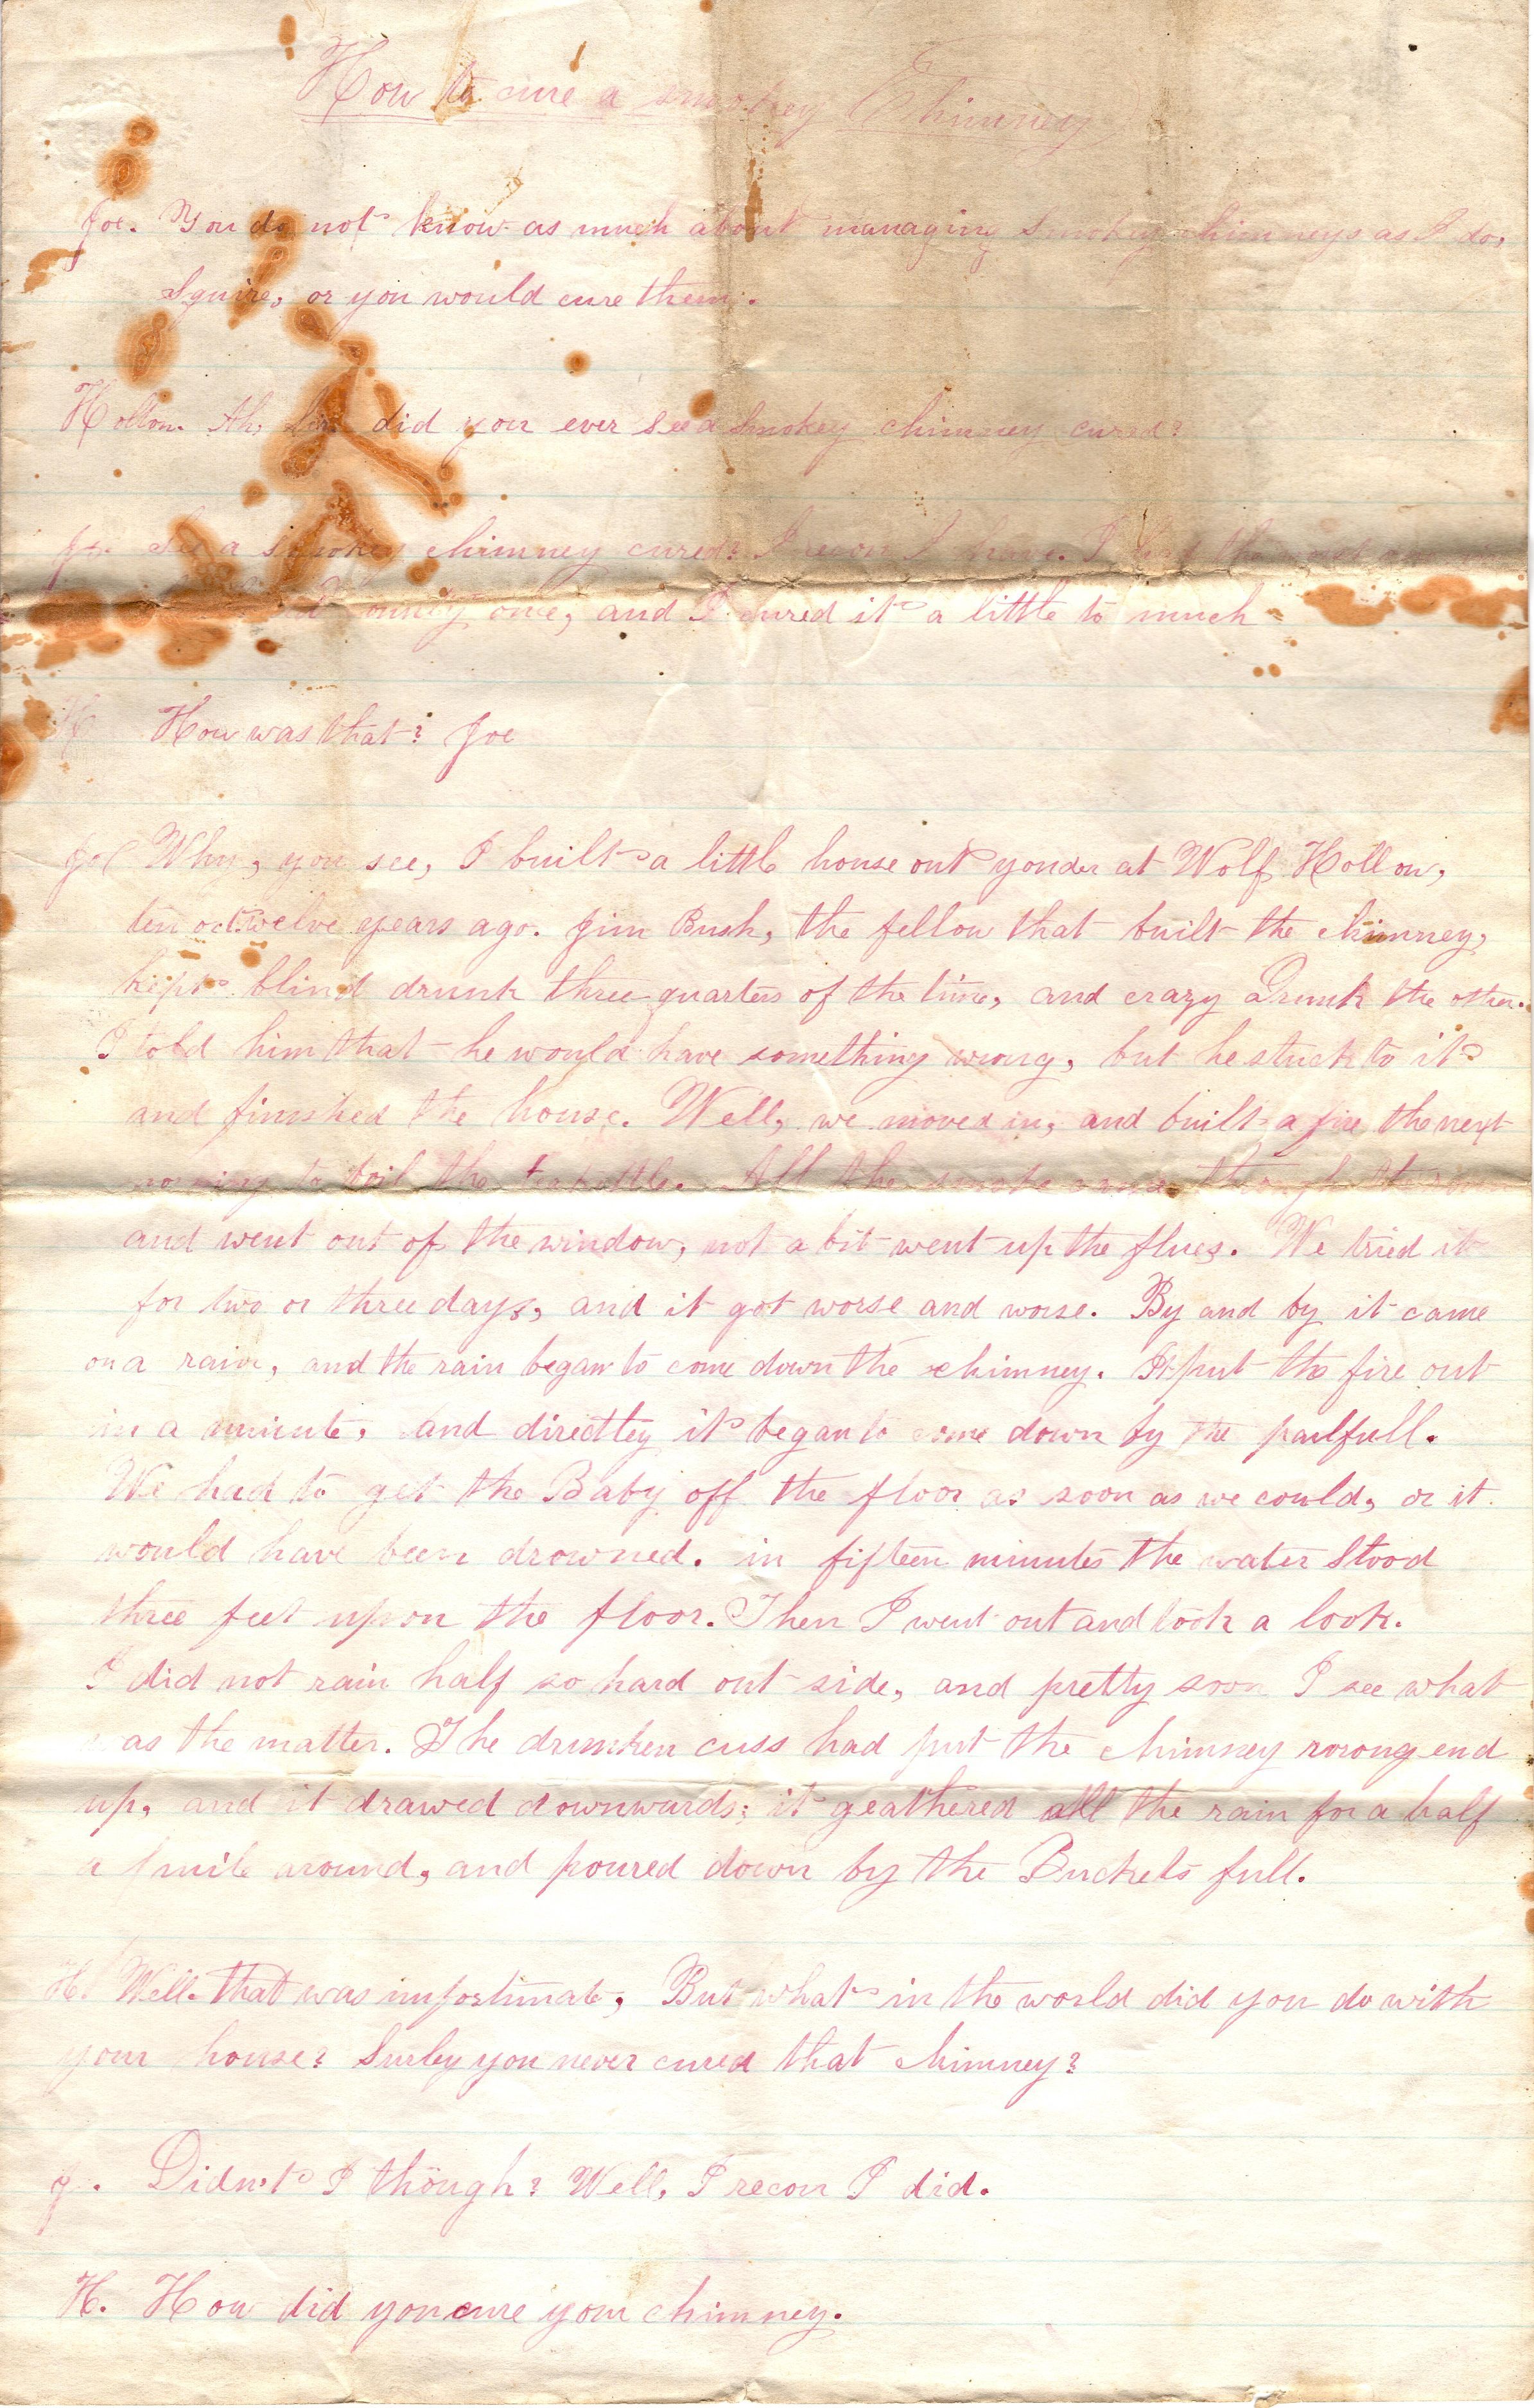 How to cure a smokey Chimney
Joe. You do not know as much about managing smokey chimneys as I do,
Squire, or you would cure them.
Holton. Ah, Sir did you ever see a Smokey chimney cured?
Jo. See a smokey chimney cured? I recon I have. I had the worst
County once, and I cured it a little to much
H How was that? Joe
Joe Why, you see, I built a little house out yonder at Wolf Hollow,
ten or twelve years ago. Jim Bush, the fellow that built the chimney,
kept blind drunk three quarters of the time, and crazy Drunk the other.
I told him that he would have something wrong, but he stuck to it
and finished the house. Well, we moved in, and built a fire the next
morning to boil the teakettle. All the smoke came through the room
and went out of the window, not a bit went up the flues. We tried it
for two or three days, and it got worse and worse. By and by it came
on a rain, and the rain began to come down the chimney. It put the fire out
in a minute, and directley it began to come down by the pailfull.
We had to get the Baby off the floor as soon as we could, or it
would have been drowned. in fifteen minutes the water Stood
three feet upon the floor. Then I went out and took a look.
I did not rain half so hard out side, and pretty soon I see what
was the matter. The drunken cuss had put the chimney wrong end
up, and it drawed downwards; it geathered all the rain for a half
a mile around, and poured down by the Buckets full.
H. Well. that was unfortunate, But what in the world did you do with
your house? Surley you never cured that chimney?
J. Didn't I though? Well, I recon I did.
H. How did you cure your chimney.